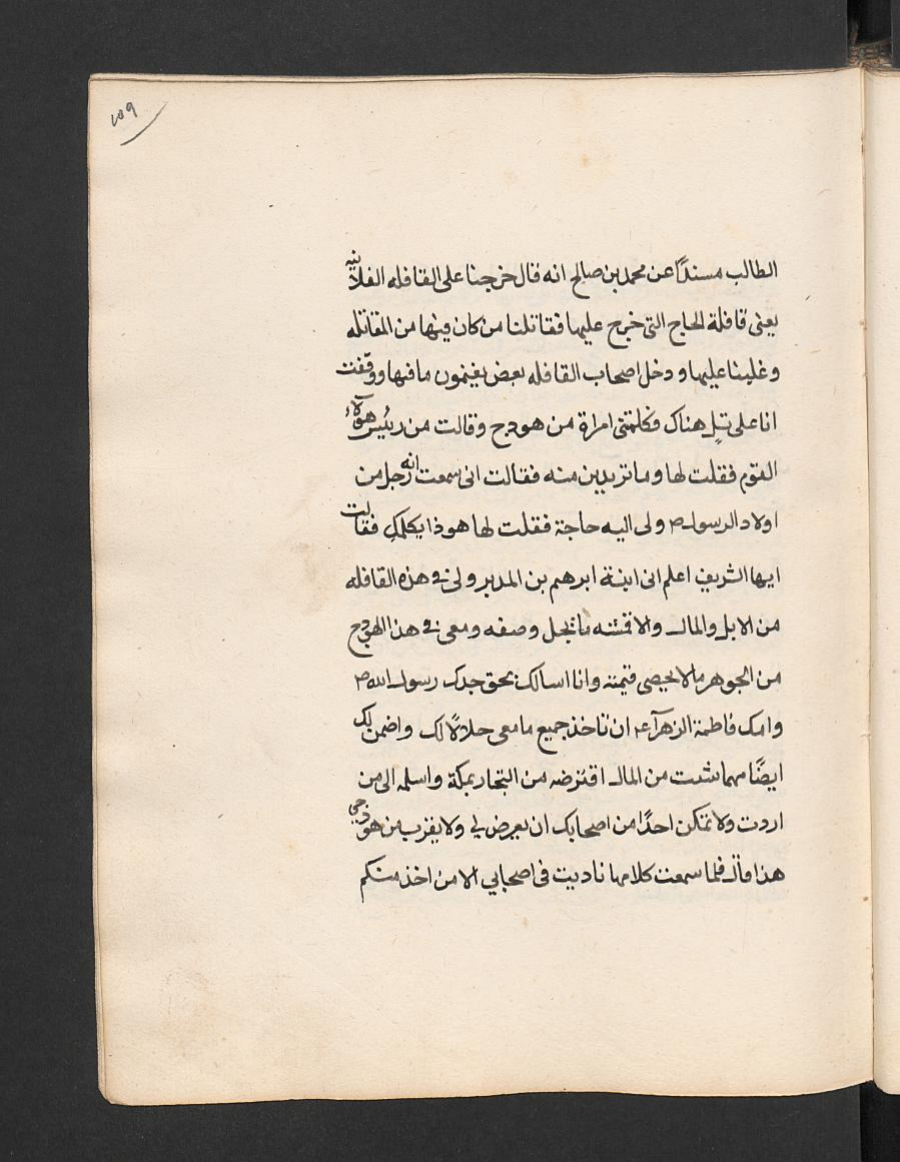 ١٥٩
الطالب مسندًا عن محمد بن صالح انه قال خرجنا على القافله الفلانيه
يعنى قافلة الحاج التى خرج عليها فقاتلنا من كان فيها من المقاتله
وغلبنا عليها و دخل اصحاب القافله بعض يغنمون ما فيها ووقفت
انا على تلٍ هناك فكلمتنى امراة من هودج وقالت من رئيس هؤلاء
القوم فقلت لها و ما تريدين منه فقالت انى سمعت انه رجل من
اولاد الرسول ص ولى اليه حاجة فقلت لها هو ذا يكلمكِ فقالت
ايها الشريف اعلم انى ابنة ابرهيم بن المدبر ولى فى هذه القافله
من الابل والمال والاقمشه ما يجل وصفه ومعى فى هذا الهودج
من الجوهر ما لا يحصى قيمته وانا اسالك بحق جدك رسول الله ص
وامك فاطمة الزهرآء ع ان تاخذ جميع ما معى حلالًا لك واضمن لك
ايضًا مهما شئت من المال اقترضه من التجار بمكة واسلمه الى من
اردت ولا تمكن احدًا من اصحابك ان يعرض لى ولا يقرب من هودجى
هذا قال فلما سمعت كلامها ناديت فى اصحابي الا من اخذ منكم